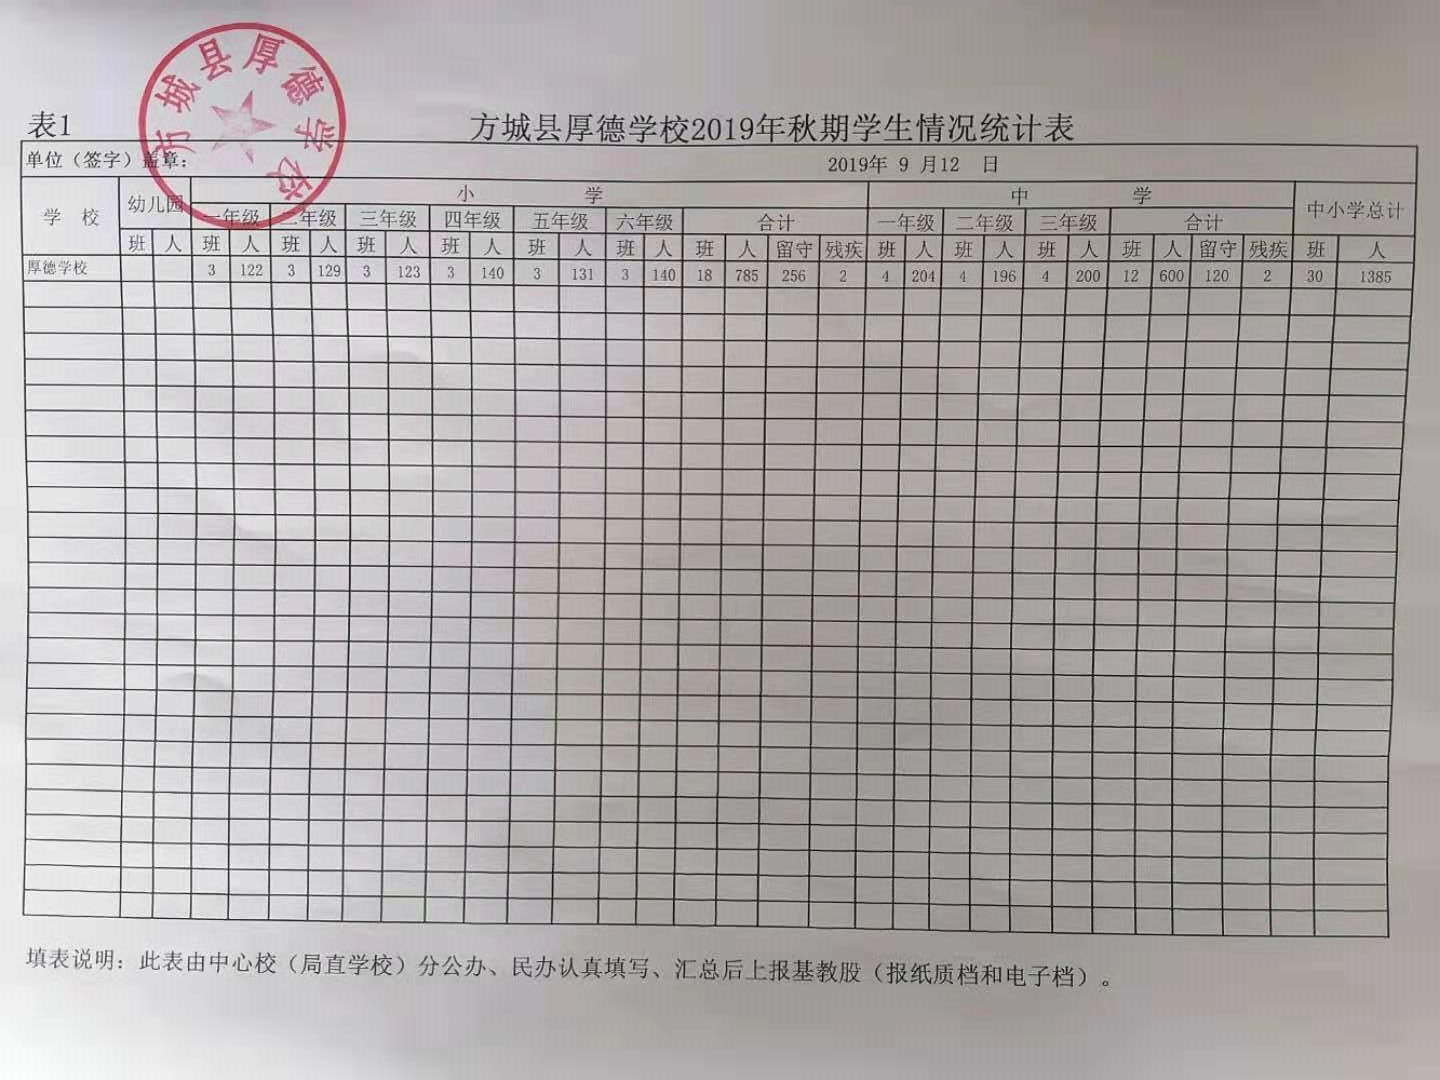 方城县厚德学校
表1
方城县厚德学校2019年秋期学生情况统计表
单位（签字）盖章： 2019年 9 月12 日
学 校 幼儿园 小 学 中 学 中小学总计
一年级 二年级 三年级 四年级 五年级 六年级 合计 一年级 二年级 三年级 合计
班 人 班 人 班 人 班 人 班 人 班 人 班 人 班 人 留守 残疾 班 人 班 人 班 人 班 人 留守 残疾 班 人
厚德学校 3 122 3 129 3 123 3 140 3 131 3 140 18 785 256 2 4 204 4 196 4 200 12 600 120 2 30 1385
填表说明：此表由中心校（局直学校）分公办、民办认真填写、汇总后上报基教股（报纸质档和电子档）。